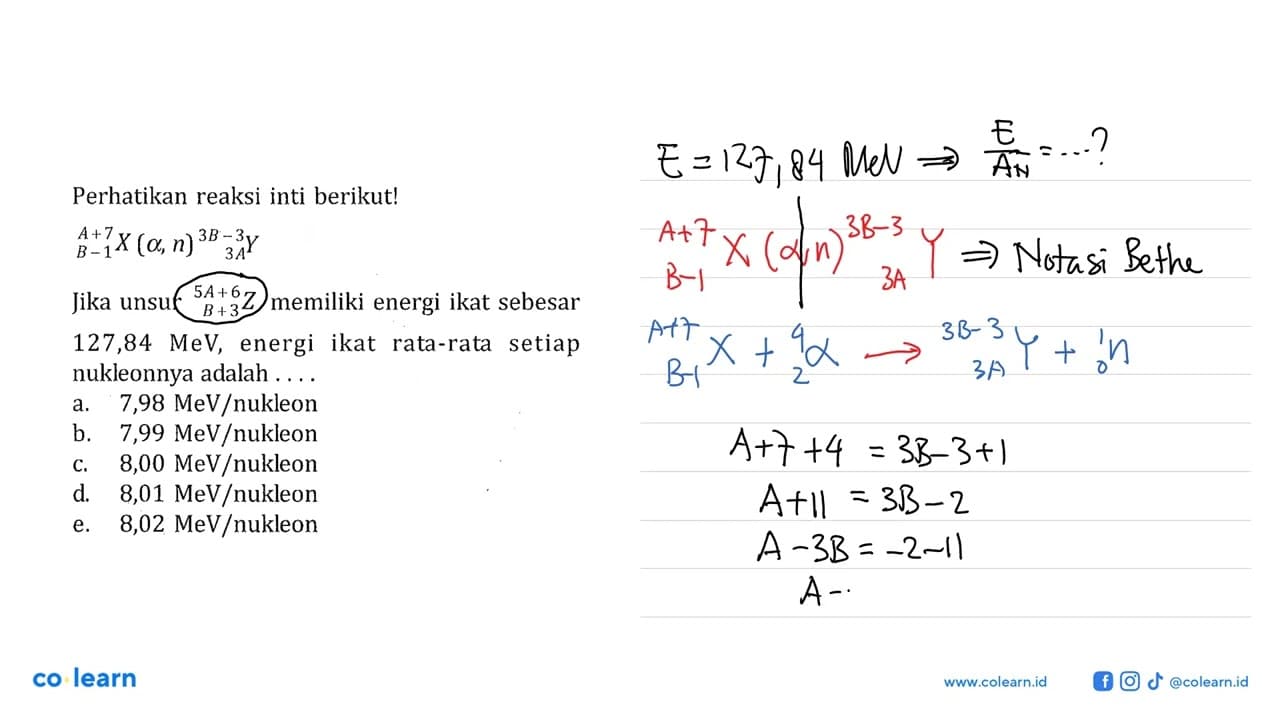 Perhatikan reaksi inti berikut!
^{A+7}_{B-1}X (α, n) ^{3B-3}_{3A}Y
Jika unsur ^{5A+6}_{B+3}Z memiliki energi ikat sebesar
127,84 MeV, energi ikat rata-rata setiap
nukleonnya adalah ....
a. 7,98 MeV/nukleon
b. 7,99 MeV/nukleon
c. 8,00 MeV/nukleon
d. 8,01 MeV/nukleon
e. 8,02 MeV/nukleon
E = 127,84 MeV ⇒ E/A_N = ...?
^{A+7}_{B-1}X (α, n) ^{3B-3}_{3A}Y ⇒ Notasi Bethe
^{A+7}_{B-1}X + ^{4}_{2}α → ^{3B-3}_{3A}Y + ^{1}_{0}n
A+7+4 = 3B-3+1
A+11 = 3B-2
A-3B = -2-11
A-
co·learn
www.colearn.id
@colearn.id